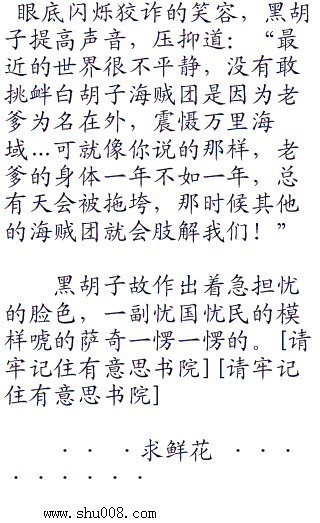 眼底闪烁狡诈的笑容，黑胡
子提高声音，压抑道：“最
近的世界很不平静，没有敢
挑衅白胡子海贼团是因为老
爹为名在外，震慑万里海
域…可就像你说的那样，老
爹的身体一年不如一年，总
有天会被拖垮，那时候其他
的海贼团就会肢解我们！”
黑胡子故作出着急担忧
的脸色，一副忧国忧民的模
样唬的萨奇一愣一愣的。[请
牢记住有意思书院][请牢记
住有意思书院]
· · ·求鲜花 · · ·
· · · · · ·
www.shu008.com